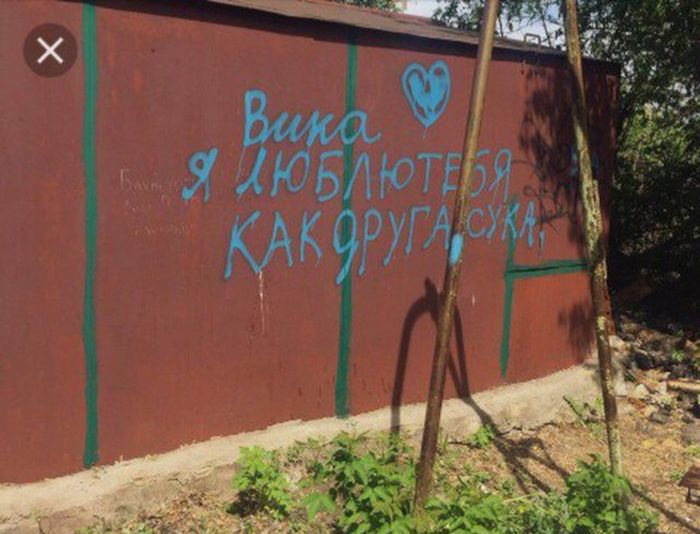 Вика
Я ЛЮБЛЮ ТЕБЯ
КАК ДРУГА, СУКА,